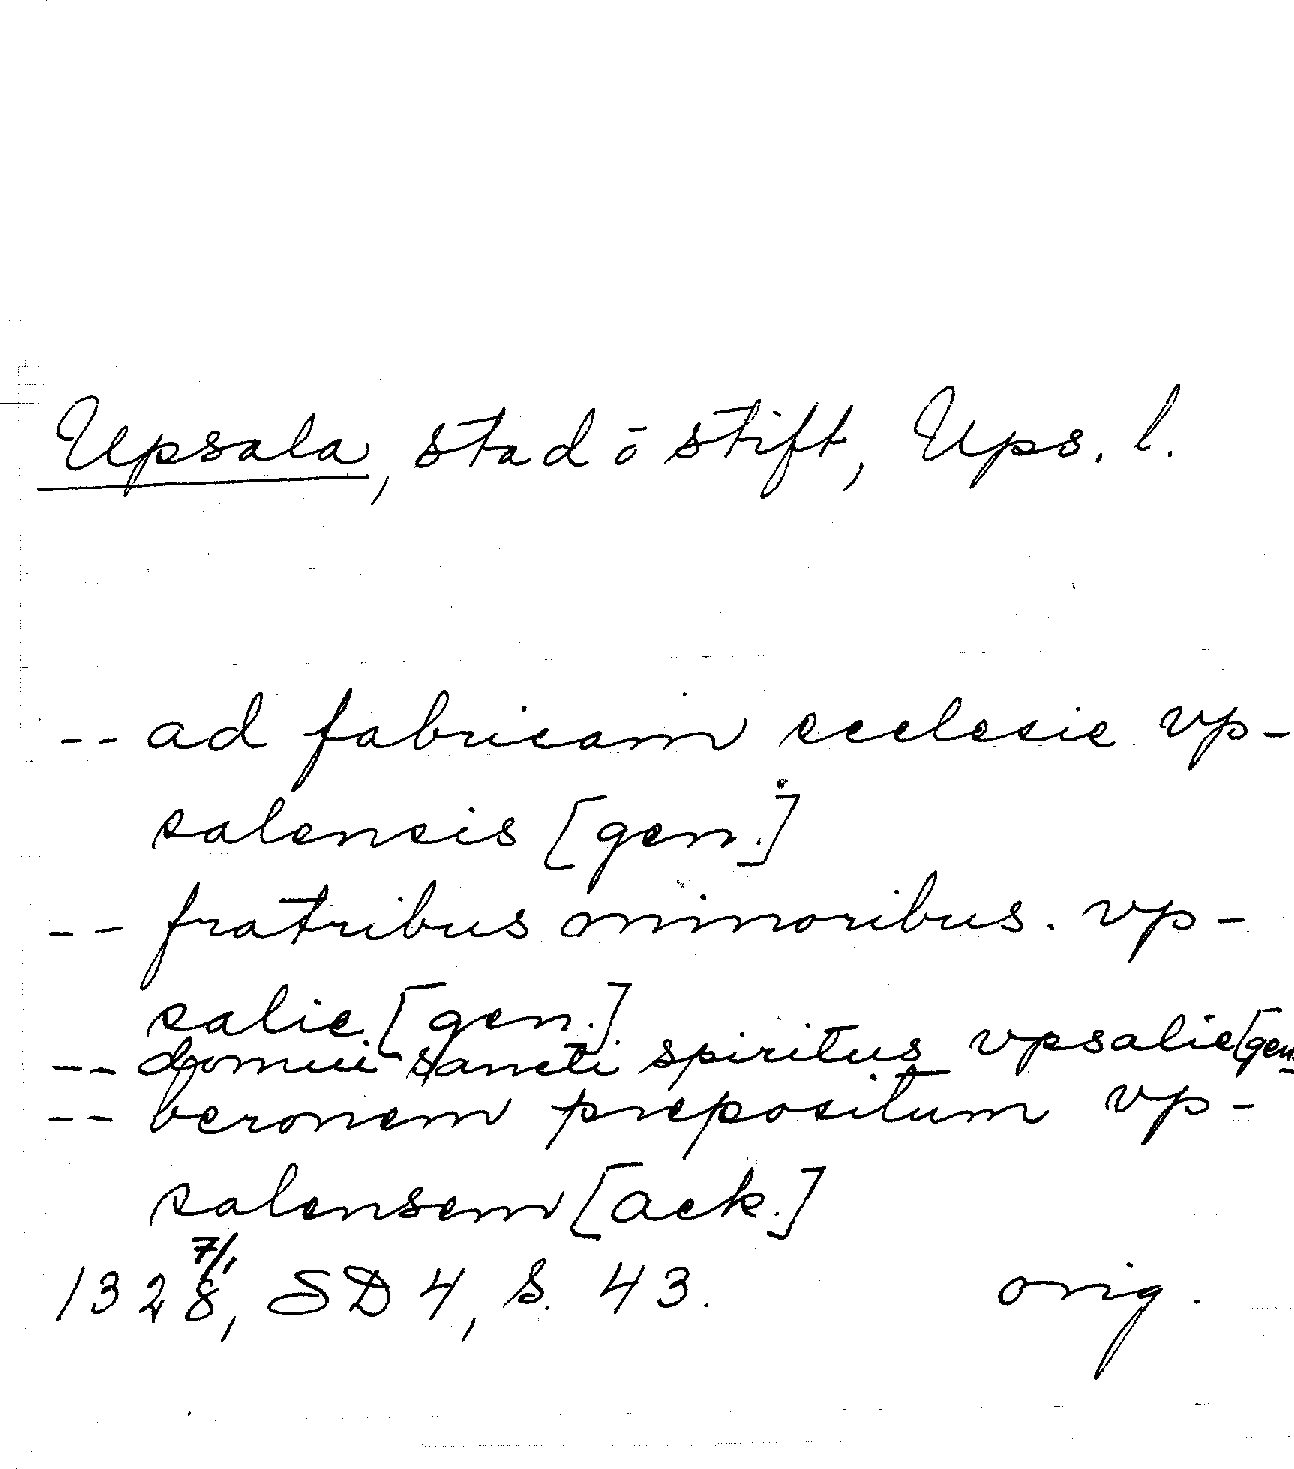 Upsala, stad ō stift, Ups. l.
-- ad fabricam ecclesie vp-
salensis [gen.]
-- fratribus minoribus. vp-
salie [gen.]
-- domui sancti spiritus vpsalie [gen.
-- beronem prepositum vp-
salensem [ack.]
7/1
1328, SD 4, s. 43. orig.